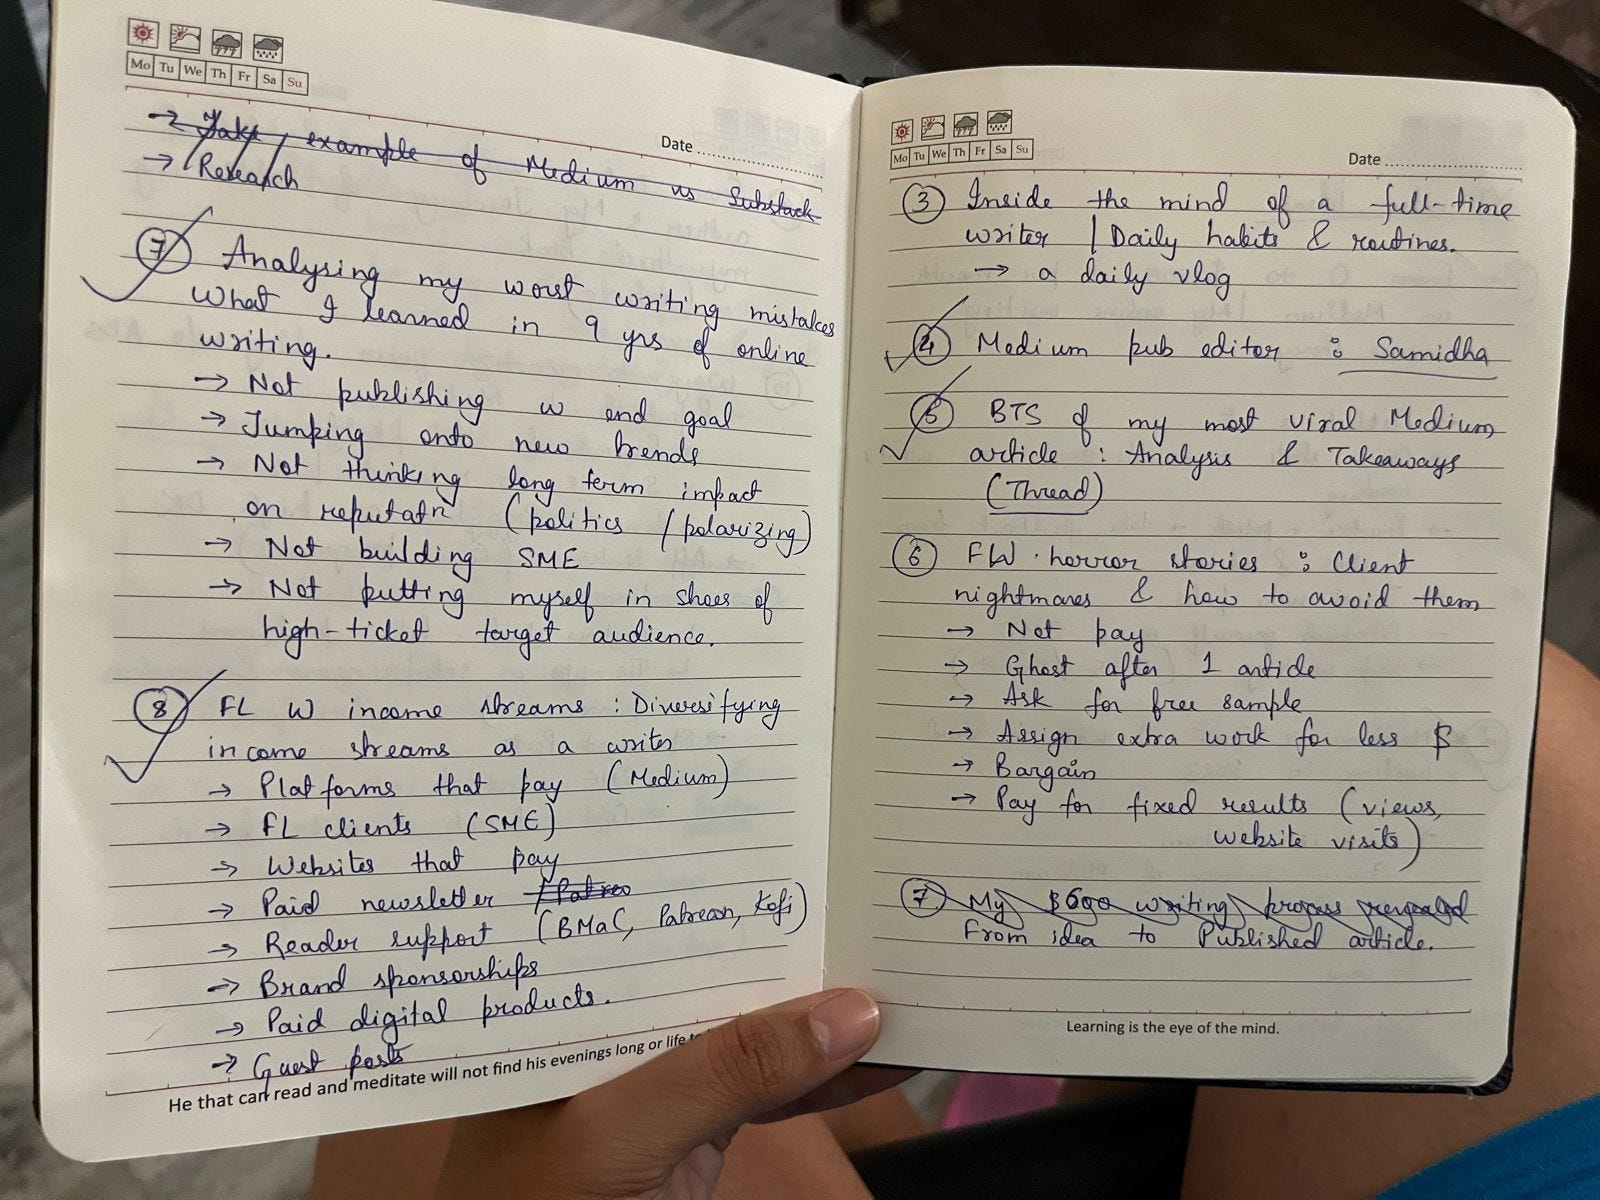 Mo Tu We Th Fr Sa Su
Date
→ Take example of Medium vs Substack
→ Research
7 Analysing my worst writing mistakes
What I learned in 9 yrs of online
writing.
→ Not publishing w end goal
→ Jumping onto new trends
→ Not thinking long term impact
on reputatn (politics / polarizing)
→ Not building SME
→ Not putting myself in shoes of
high-ticket target audience.
8 FL W income streams : Diversifying
income streams as a writer
→ Platforms that pay (Medium)
→ FL clients (SME)
→ Websites that pay
→ Paid newsletter
→ Reader support (BMaC, Patreon, Kofi)
→ Brand sponsorships
→ Paid digital products.
→ Guest posts
He that can read and meditate will not find his evenings long or life
Mo Tu We Th Fr Sa Su
Date
3 Inside the mind of a full-time
writer | Daily habits & routines.
→ a daily vlog
4 Medium pub editor : Samidha
5 BTS of my most viral Medium
article : Analysis & Takeaways
(Thread)
6 FW horror stories : Client
nightmares & how to avoid them
→ Not pay
→ Ghost after 1 article
→ Ask for free sample
→ Assign extra work for less $
→ Bargain
→ Pay for fixed results (views,
website visits)
7 My $600 writing process revealed
From idea to Published article.
Learning is the eye of the mind.